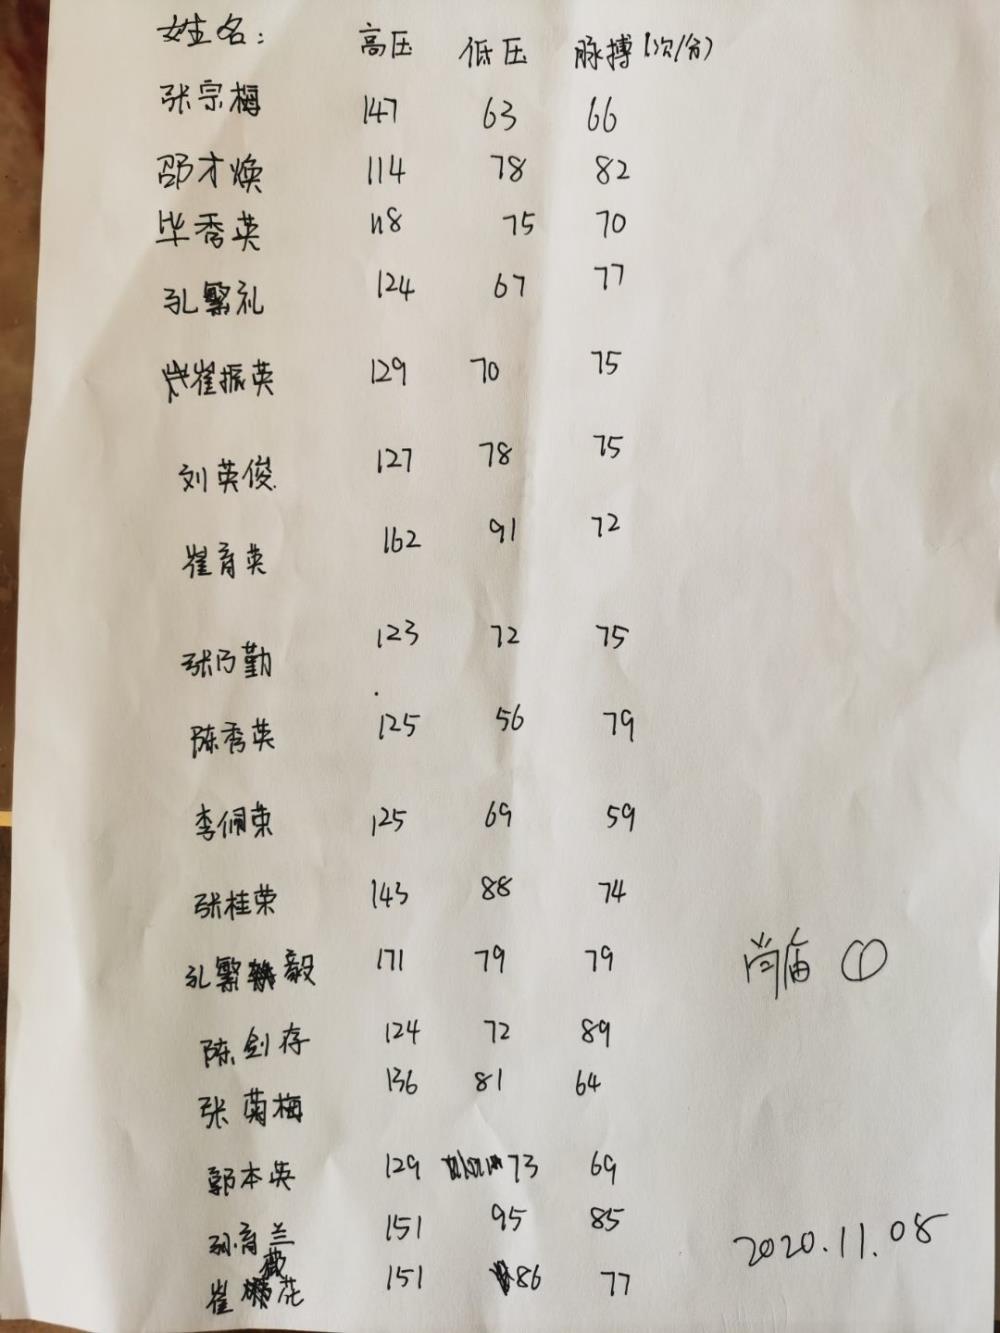 姓名: 高压 低压 脉搏(次/分)
张宗梅 147 63 66
邵才焕 114 78 82
毕秀英 118 75 70
孔繁礼 124 67 77
崔振英 129 70 75
刘英俊 127 78 75
崔育英 162 91 72
张乃勤 123 72 75
陈秀英 125 56 79
李佩荣 125 69 59
张桂荣 143 88 74
孔繁毅 171 79 79
尚庙 ①
陈剑存 124 72 89
张菊梅 136 81 64
郭本英 129 73 69
孙育兰 151 95 85
2020.11.08
崔 花 151 86 77